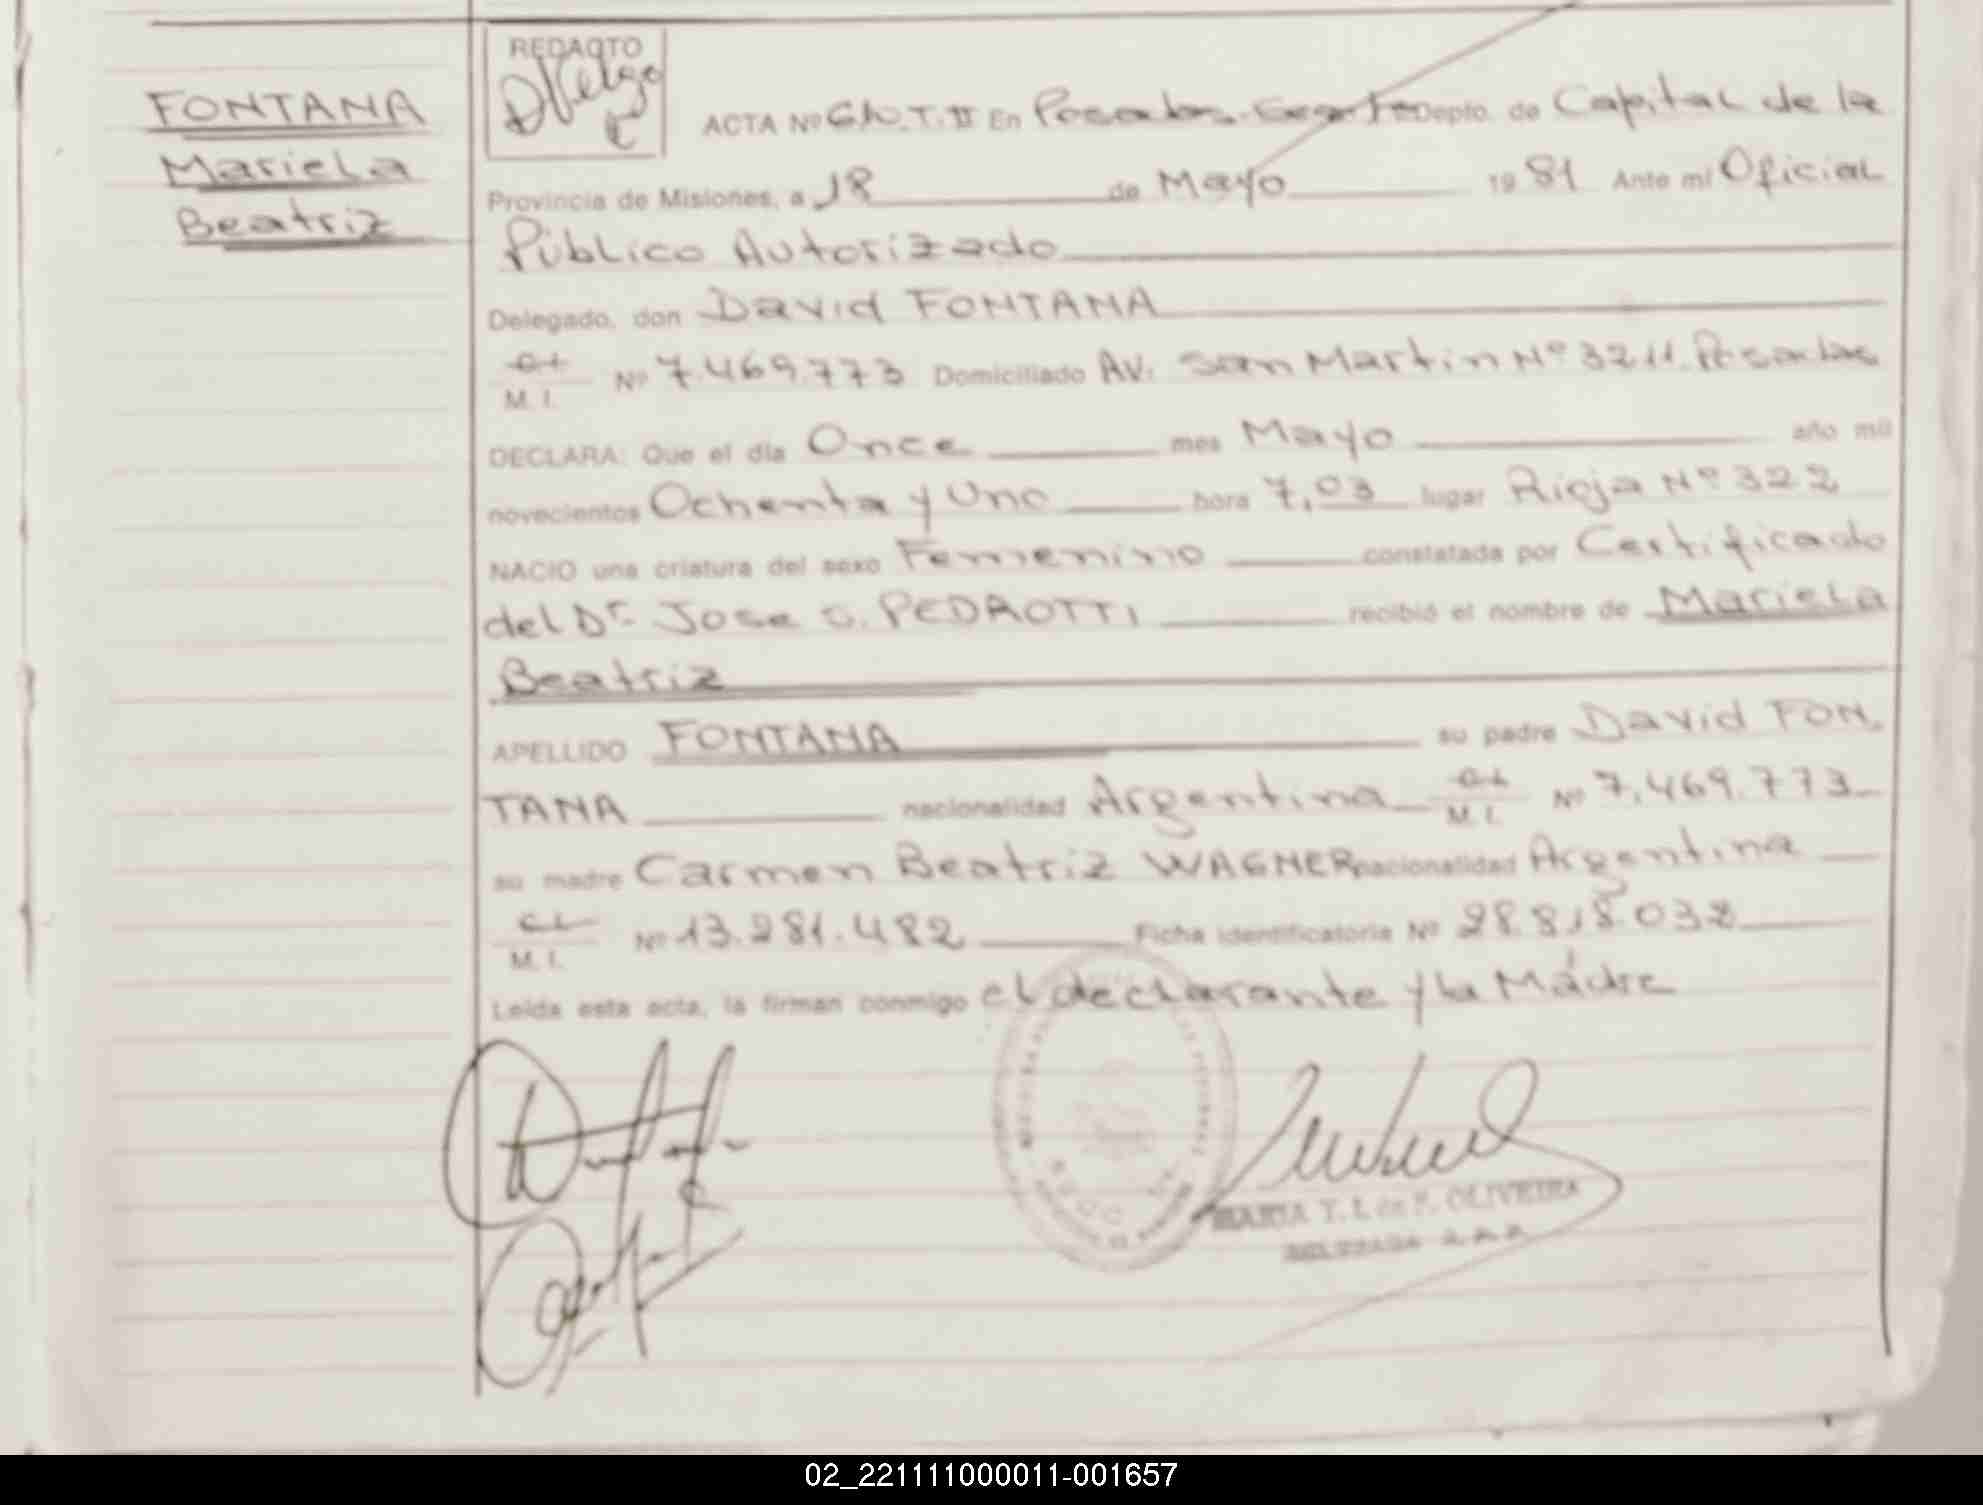 FONTANA
Mariela
Beatriz
REDACTO
ACTA Nº T. II En Posadas Depto. de Capital de la
Provincia de Misiones, a 18 de Mayo 1981 Ante mí Oficial
Público Autorizado
Delegado, don David FONTANA
M. I. Nº 7.469.773 Domiciliado Av. San Martin Nº 3211. Posadas
DECLARA: Que el día Once mes Mayo año mil
novecientos Ochenta y Uno hora 7,03 lugar Rioja Nº 322
NACIO una criatura del sexo Femenino constatada por Certificado
del Dr. Jose O. PEDROTTI recibió el nombre de Mariela
Beatriz
APELLIDO FONTANA su padre David FON.
TANA nacionalidad Argentina M. I. Nº 7.469.773
su madre Carmen Beatriz WAGNER nacionalidad Argentina
M. I. Nº 13.281.482 Ficha identificatoria Nº 28.818.032
Leída esta acta, la firman conmigo el declarante y la Madre
OLIVEIRA
DELEGADA
02_221111000011-001657